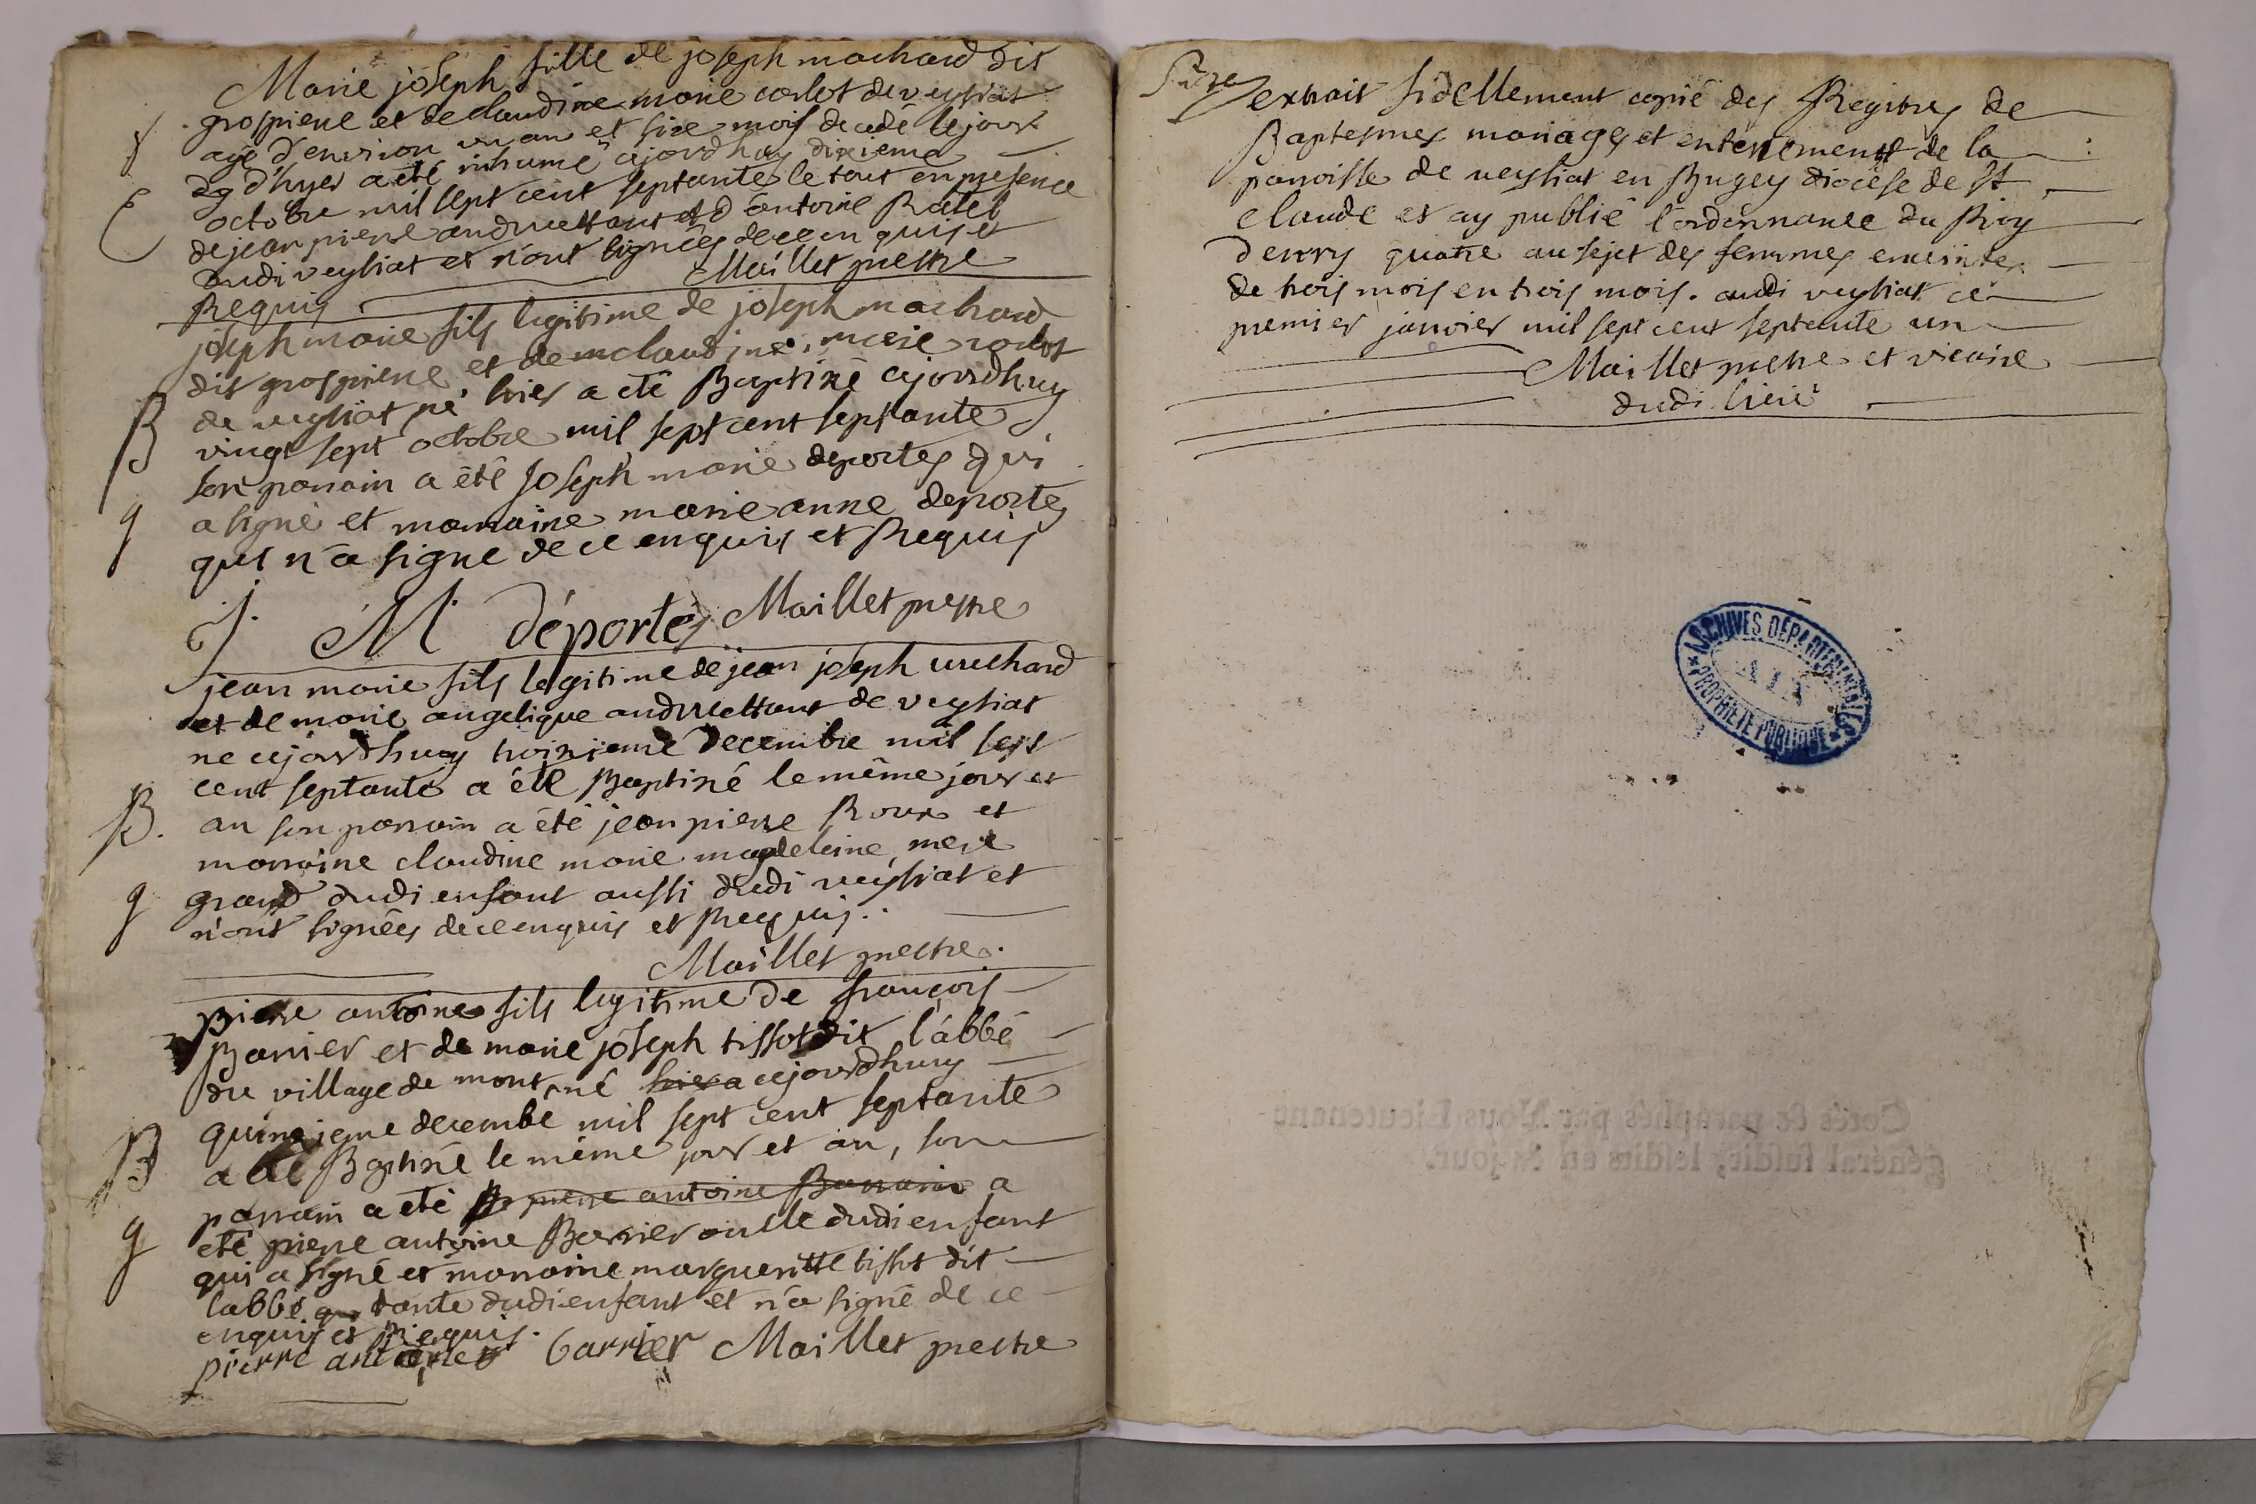 Marie joseph fille de joseph machard dit
grospierre et de claudine marie carlot de veysiat
agé d'environ un an et sixe mois decedé le jour
d'hyer a eté inhumé cejourdhuy dixieme
octobre mil sept cent septante le tout en presence
de jean pierre andruettant et d'antoine Ratel
dudi veysiat et n'ont signées de ce enquis et
Requis Maillet prestre
E
joseph marie fils legitime de joseph machard
dit grospierre et de claudine marie carlot
de veysiat né hier a eté Baptizé cejourdhuy
B
vingt sept octobre mil sept cent septante
son parrain a été joseph marie deportes qui
a signé et marraine marie anne deportes
g
qui n'a signe de ce enquis et Requis
J. M. déportes Maillet prestre
jean marie fils legitime de jean joseph
et de marie angelique andruettant de veysiat
ne cejourdhuy troizieme decembre mil sept
cent septante a été Baptizé le même jour et
B.
an son parrain a été jean pierre Roux et
marraine claudine marie magdeleine mere
g
grand dudi enfant aussi dudi veysiat et
n'ont signées de ce enquis et Requis.
Maillet prestre.
pierre antoine fils legitime de françois
Barrier et de marie joseph tissot dit l'abbé
du village de mont, né hier a cejourdhuy
quinzieme decembe mil sept cent septante
B
a été Baptizé le même jour et an, son
parrain a eté pierre antoine a
g
eté pierre antoine Barrier oncle dudi enfant
qui a signé et marraine margueritte tissot dit
labbé tante dudi enfant et n'a signé de ce
enquis et Requis.
pierre antoine barrier Maillet prestre
extrait fidellement copié des Regitres de
Baptesmes mariages et enterrements de la
parroisse de veysiat en Bugey diocèse de St
Claude et ay publié l'ordonnance du Roy
D'enry quatre au sejet des femmes enceintes
de trois mois en trois mois. audi veysiat ce
premier janvier mil sept cent septante un
Maillet prestre et vicaire
dudi lieu
ARCHIVES DÉPARTEMENTALES
AIN
PROPRIÉTÉ PUBLIQUE
Cotés & paraphés par Nous Lieutenant
général susdit, lesdits an & jour.